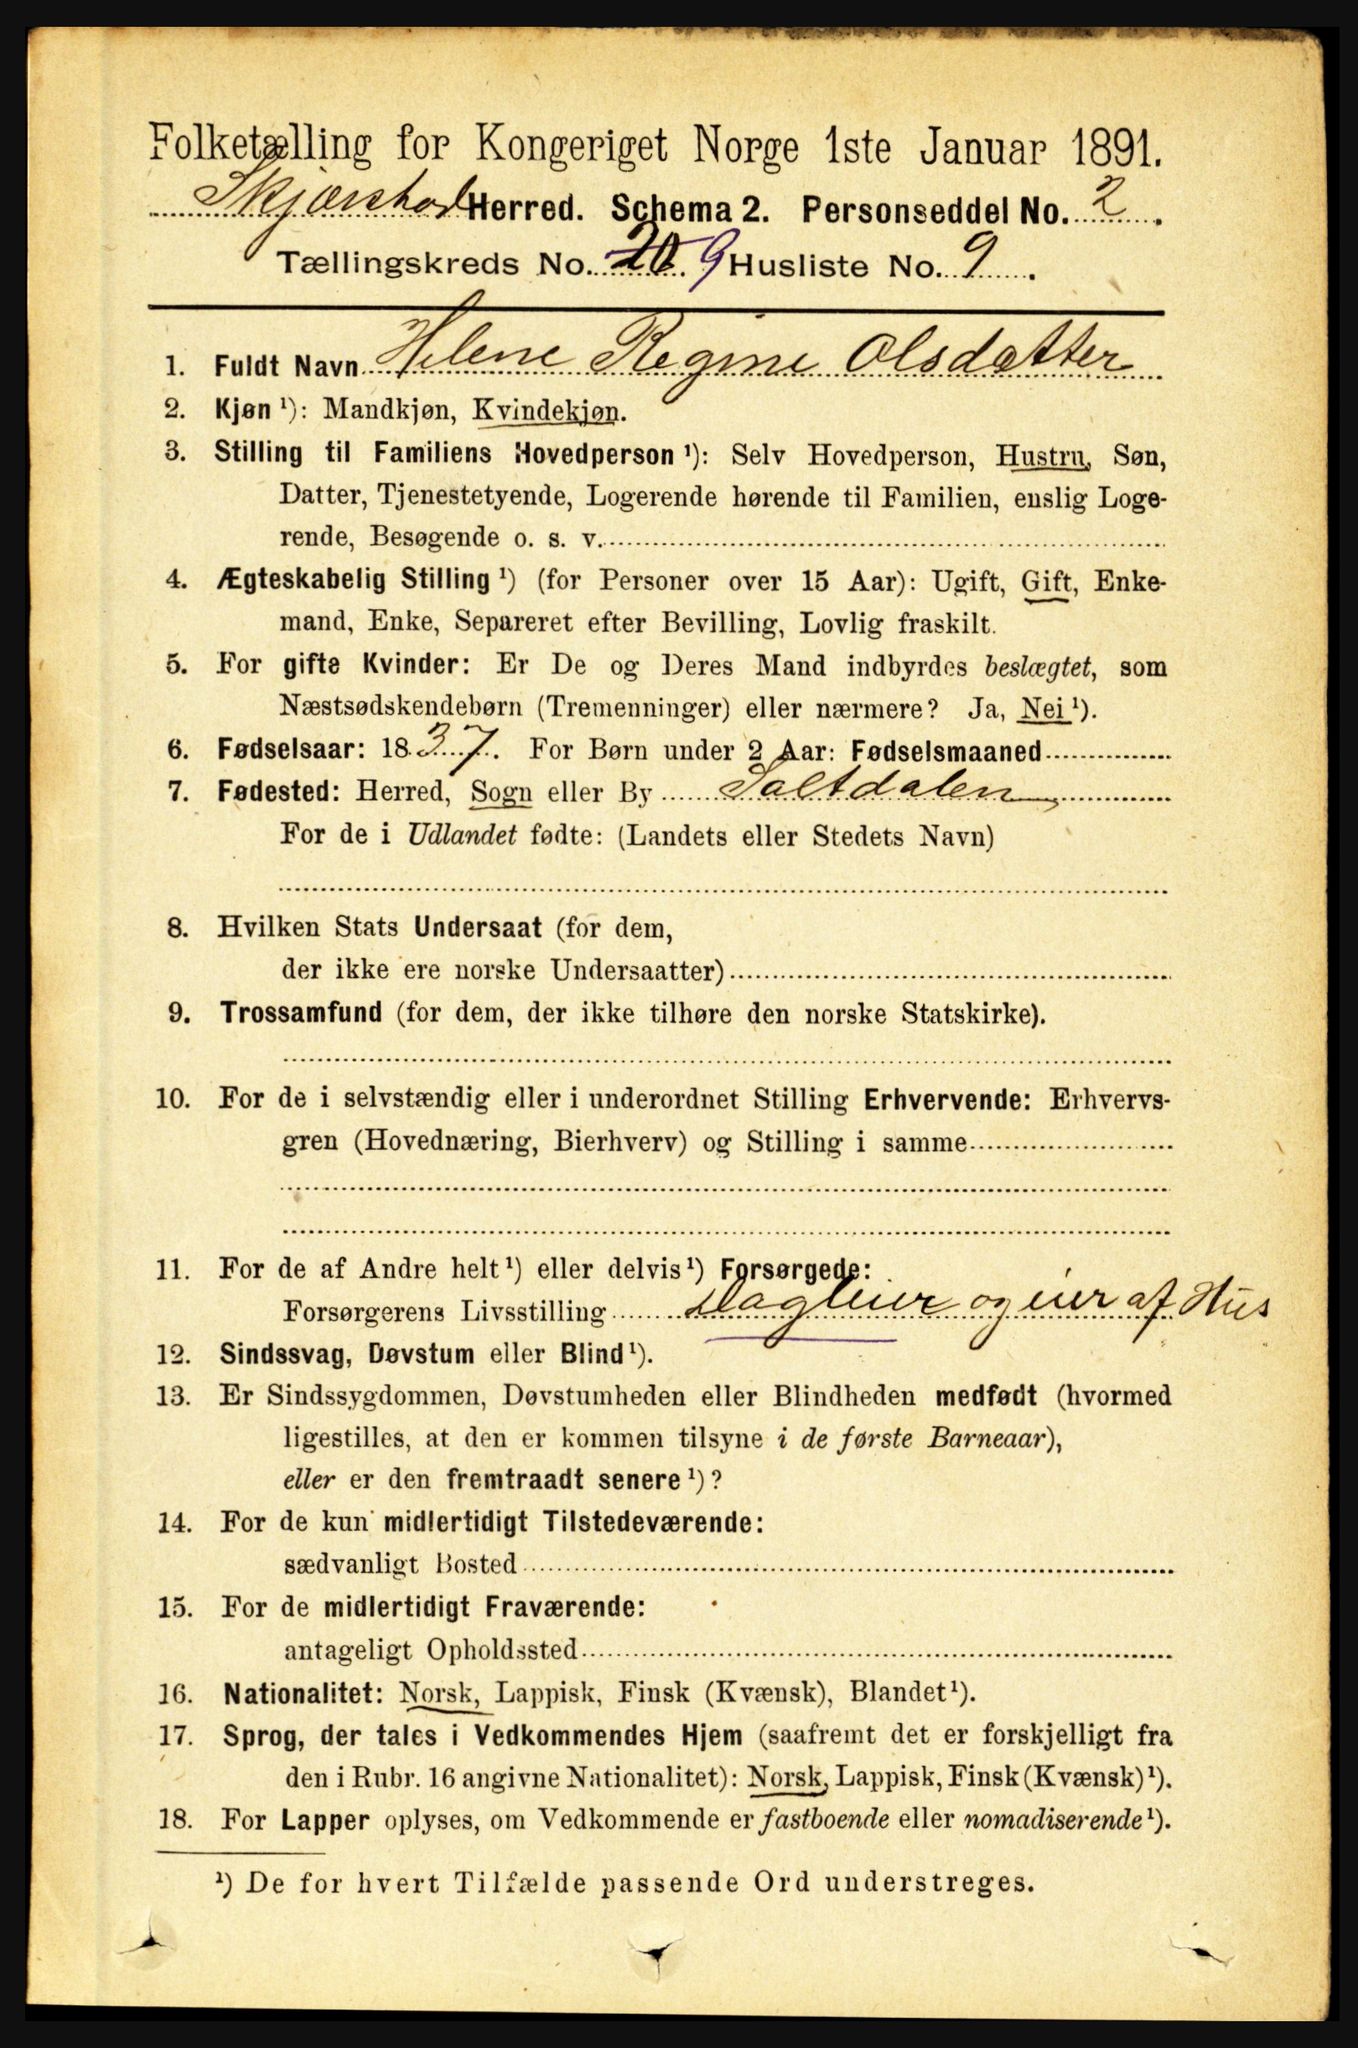 Folketælling for Kongeriget Norge 1ste Januar 1891.
Skjærstad Herred. Schema 2. Personseddel No. 2.
Tællingskreds No. 20 9 Husliste No. 9.
1. Fuldt Navn Helene Regine Olsdatter
2. Kjøn ¹): Mandkjøn, Kvindekjøn.
3. Stilling til Familiens Hovedperson ¹): Selv Hovedperson, Hustru, Søn,
Datter, Tjenestetyende, Logerende hørende til Familien, enslig Loge-
rende, Besøgende o. s. v.
4. Ægteskabelig Stilling ¹) (for Personer over 15 Aar): Ugift, Gift, Enke-
mand, Enke, Separeret efter Bevilling, Lovlig fraskilt.
5. For gifte Kvinder: Er De og Deres Mand indbyrdes beslægtet, som
Næstsødskendebørn (Tremenninger) eller nærmere? Ja, Nei ¹).
6. Fødselsaar: 1837. For Børn under 2 Aar: Fødselsmaaned
7. Fødested: Herred, Sogn eller By Saltdalen
For de i Udlandet fødte: (Landets eller Stedets Navn)
8. Hvilken Stats Undersaat (for dem,
der ikke ere norske Undersaatter)
9. Trossamfund (for dem, der ikke tilhøre den norske Statskirke).
10. For de i selvstændig eller i underordnet Stilling Erhvervende: Erhvervs-
gren (Hovednæring, Bierhverv) og Stilling i samme
11. For de af Andre helt ¹) eller delvis ¹) Forsørgede:
Forsørgerens Livsstilling Dagleier og eier af Hus
12. Sindssvag, Døvstum eller Blind ¹).
13. Er Sindssygdommen, Døvstumheden eller Blindheden medfødt (hvormed
ligestilles, at den er kommen tilsyne i de første Barneaar),
eller er den fremtraadt senere ¹)?
14. For de kun midlertidigt Tilstedeværende:
sædvanligt Bosted
15. For de midlertidigt Fraværende:
antageligt Opholdssted
16. Nationalitet: Norsk, Lappisk, Finsk (Kvænsk), Blandet ¹).
17. Sprog, der tales i Vedkommendes Hjem (saafremt det er forskjelligt fra
den i Rubr. 16 angivne Nationalitet): Norsk, Lappisk, Finsk (Kvænsk) ¹).
18. For Lapper oplyses, om Vedkommende er fastboende eller nomadiserende ¹).
¹) De for hvert Tilfælde passende Ord understreges.